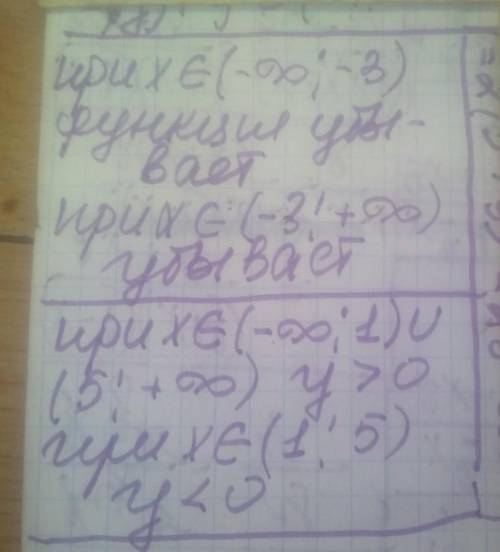 при х ∈ (-∞; -3)
функция убы-
вает
при х ∈ (-3; +∞)
убывает
при х ∈ (-∞; 1) ∪
(5; +∞) y > 0
при х ∈ (1; 5)
y < 0